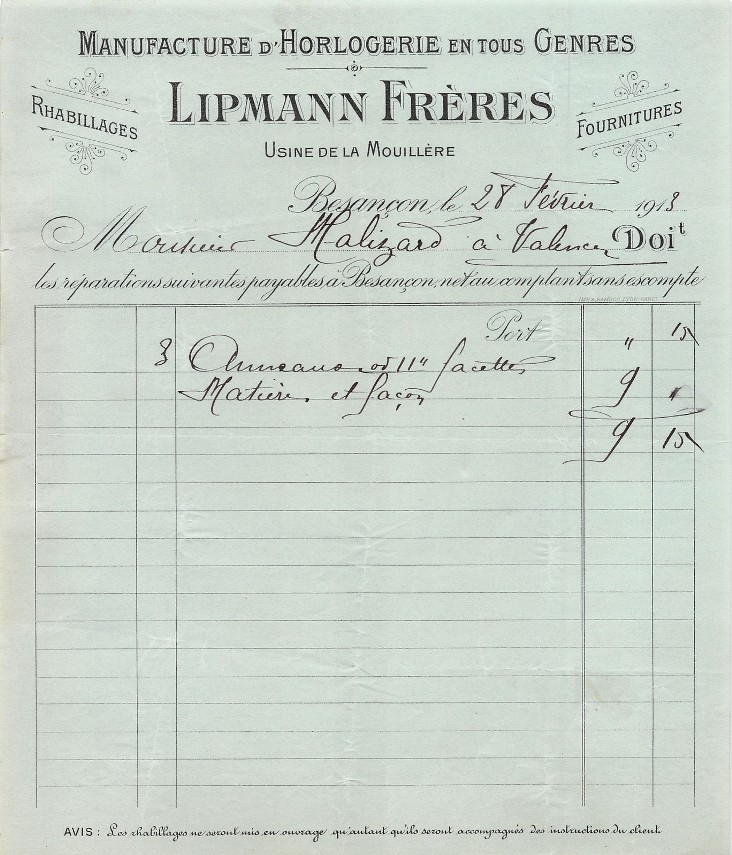 MANUFACTURE D'HORLOGERIE EN TOUS GENRES
LIPMANN FRÈRES
RHABILLAGES
FOURNITURES
USINE DE LA MOUILLÈRE
Besançon, le 28 Février 1913
Monsieur Malizard à Valence Doit
les réparations suivantes payables à Besançon, net au comptant sans escompte
Port " 15
3 Anneaux or 11 facettes
Matière et façon 9 "
9 15
AVIS : Les rhabillages ne seront mis en ouvrage qu'autant qu'ils seront accompagnés des instructions du client.